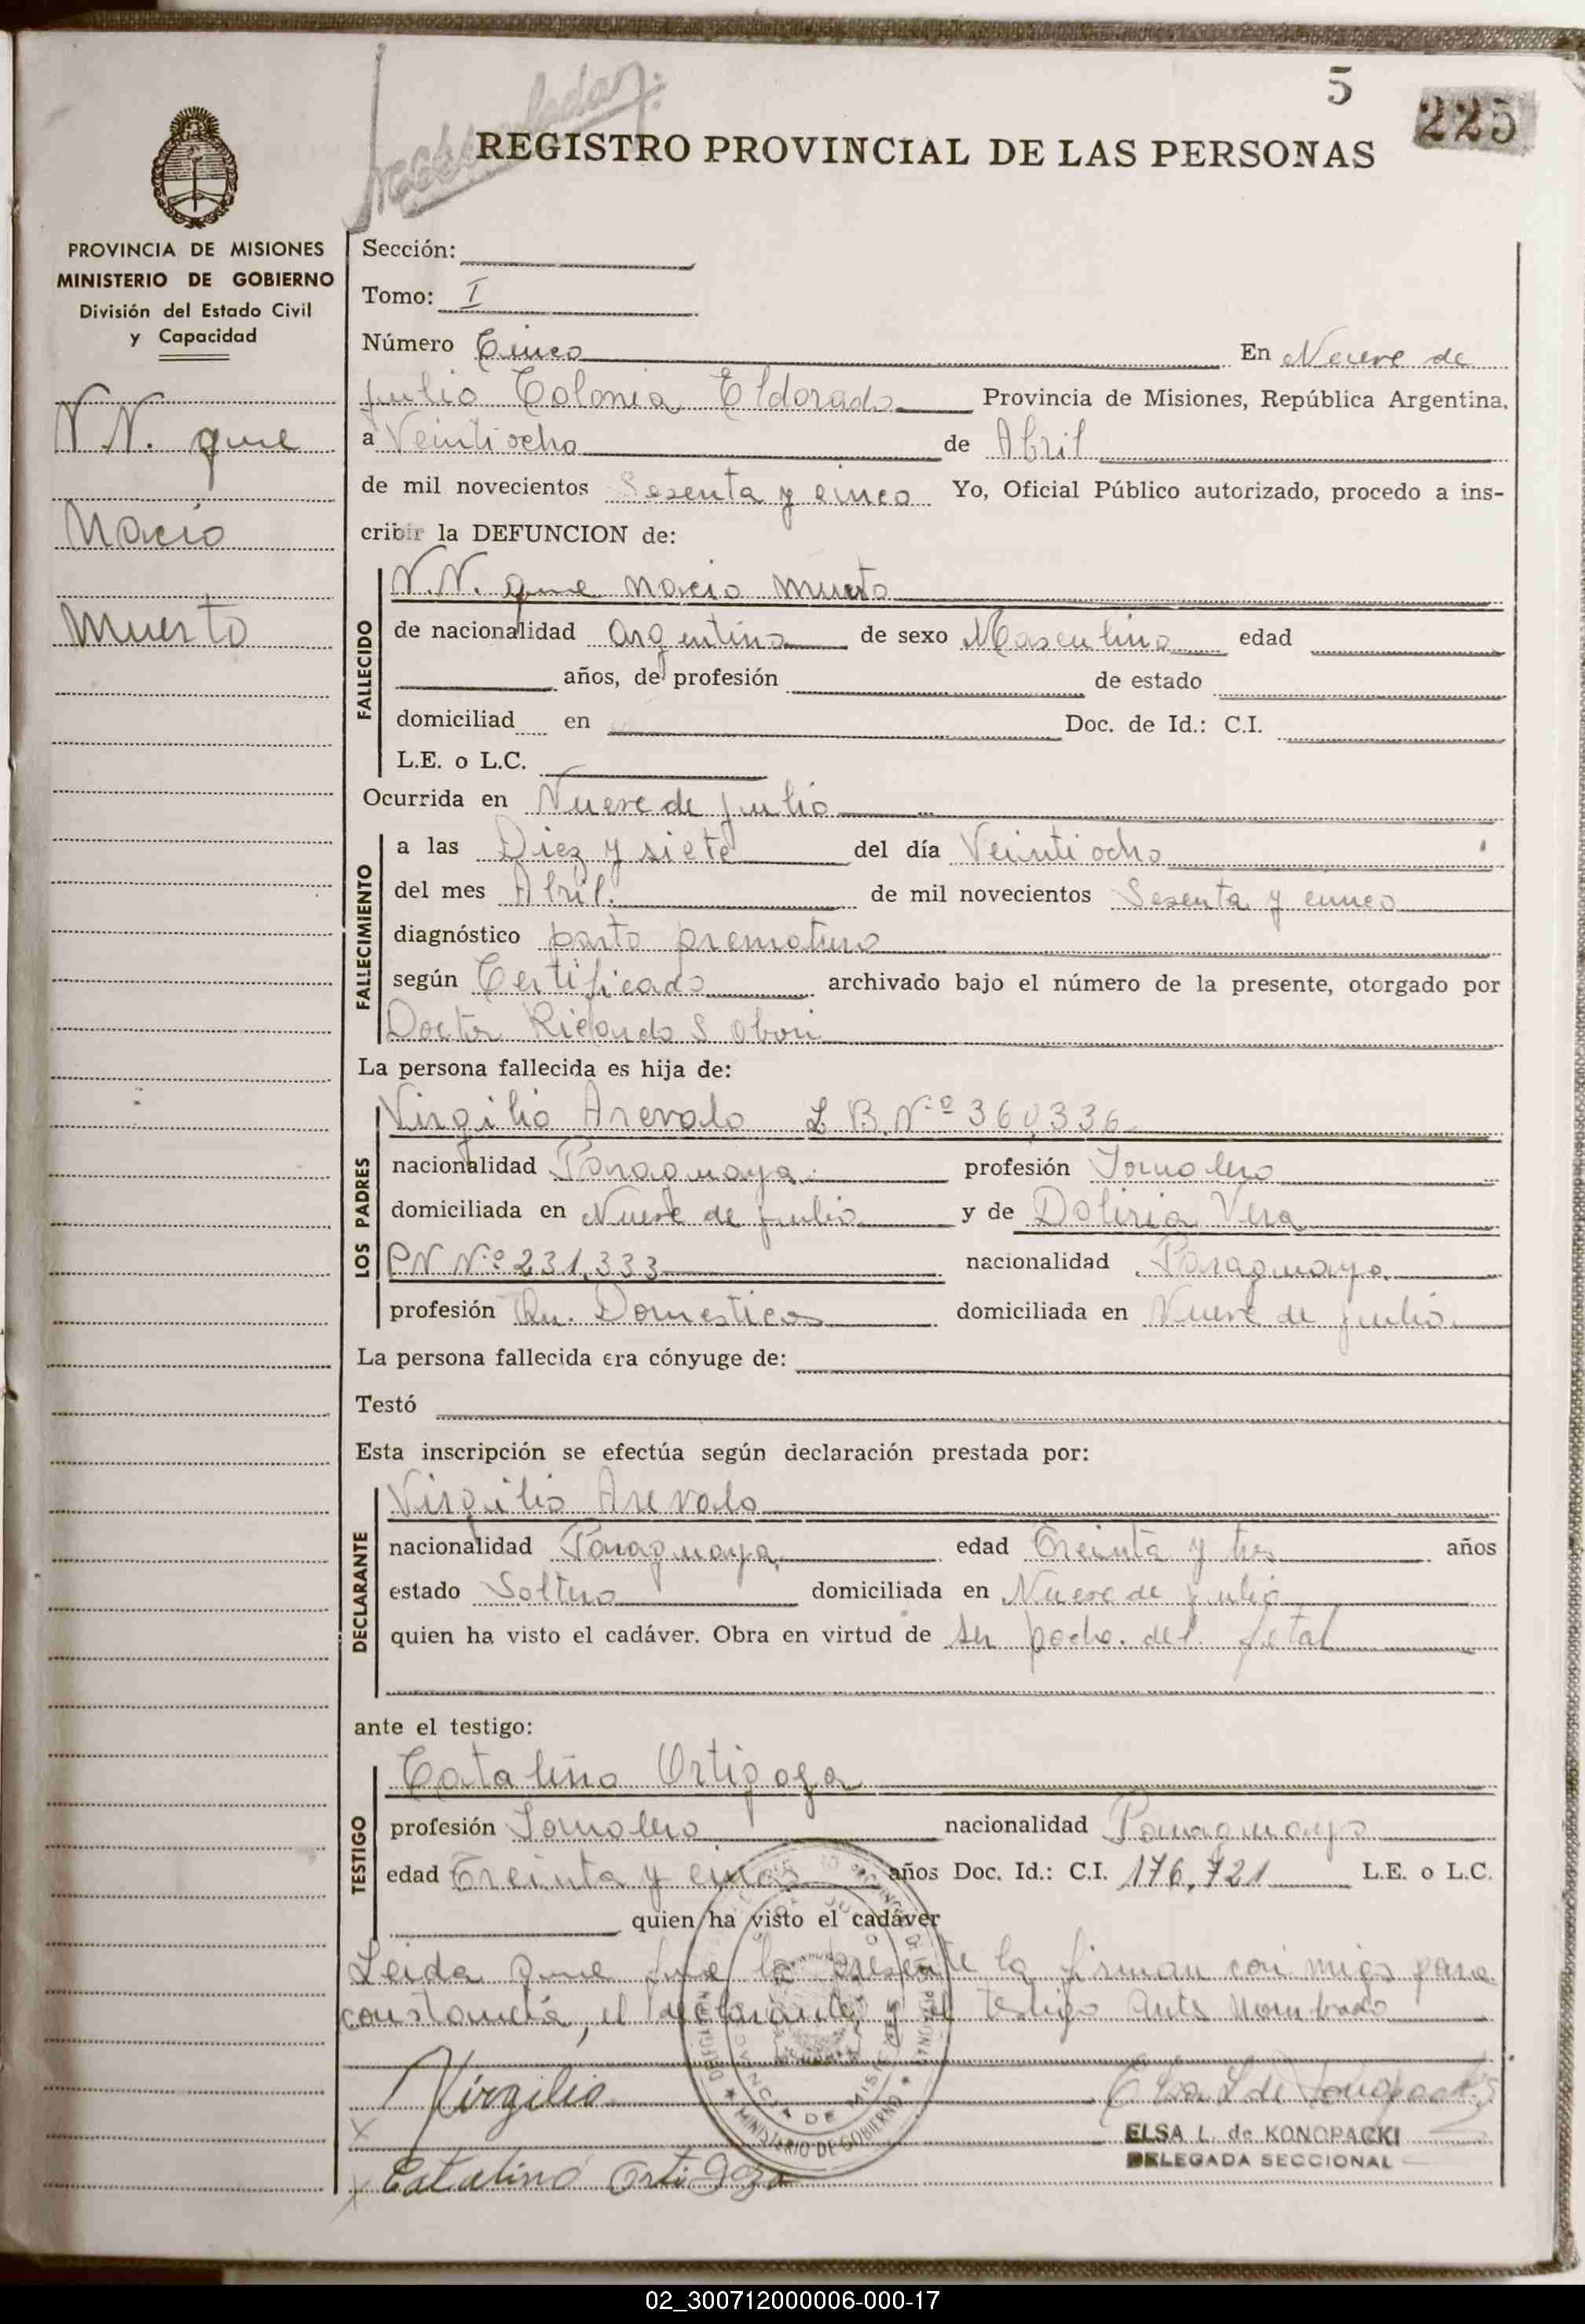 5
225
REGISTRO PROVINCIAL DE LAS PERSONAS
PROVINCIA DE MISIONES
MINISTERIO DE GOBIERNO
División del Estado Civil
y Capacidad
N.N. que
Nacio
Muerto
Sección:
Tomo: I
Número Cinco En Nueve de
Julio Colonia Eldorado Provincia de Misiones, República Argentina,
a Veintiocho de Abril
de mil novecientos Sesenta y cinco Yo, Oficial Público autorizado, procedo a ins-
cribir la DEFUNCION de:
FALLECIDO
N.N. que Nacio Muerto
de nacionalidad Argentina de sexo Masculino edad
años, de profesión de estado
domiciliad en Doc. de Id.: C.I.
L.E. o L.C.
Ocurrida en Nueve de Julio
FALLECIMIENTO
a las Diez y siete del día Veintiocho
del mes Abril. de mil novecientos Sesenta y cinco
diagnóstico parto prematuro
según Certificado archivado bajo el número de la presente, otorgado por
Doctor Ricardo S
La persona fallecida es hija de:
LOS PADRES
Virgilio Arevalo L B. Nº 360,336
nacionalidad Paraguaya profesión Jornalero
domiciliada en Nueve de Julio y de Doliria Vera
PN Nº 231,333 nacionalidad Paraguaya
profesión Qu. Domesticos domiciliada en Nueve de Julio
La persona fallecida era cónyuge de:
Testó
Esta inscripción se efectúa según declaración prestada por:
DECLARANTE
Virgilio Arevalo
nacionalidad Paraguaya edad Treinta y tres años
estado Soltero domiciliada en Nueve de Julio
quien ha visto el cadáver. Obra en virtud de ser padre. del. fetal
ante el testigo:
TESTIGO
Catalino Ortigoza
profesión Jornalero nacionalidad Paraguayo
edad Treinta y cinco años Doc. Id.: C.I. 176,721 L.E. o L.C.
quien ha visto el cadáver
Leida que fue la presente la firman con migo para
constancia, el declarante y el testigo antes Nombrado
Virgilio
Elsa L de Konopacki
ELSA L. de KONOPACKI
DELEGADA SECCIONAL
Catalino Ortigoza
MINISTERIO DE GOBIERNO
PROVINCIA DE MISIONES
02_300712000006-000-17